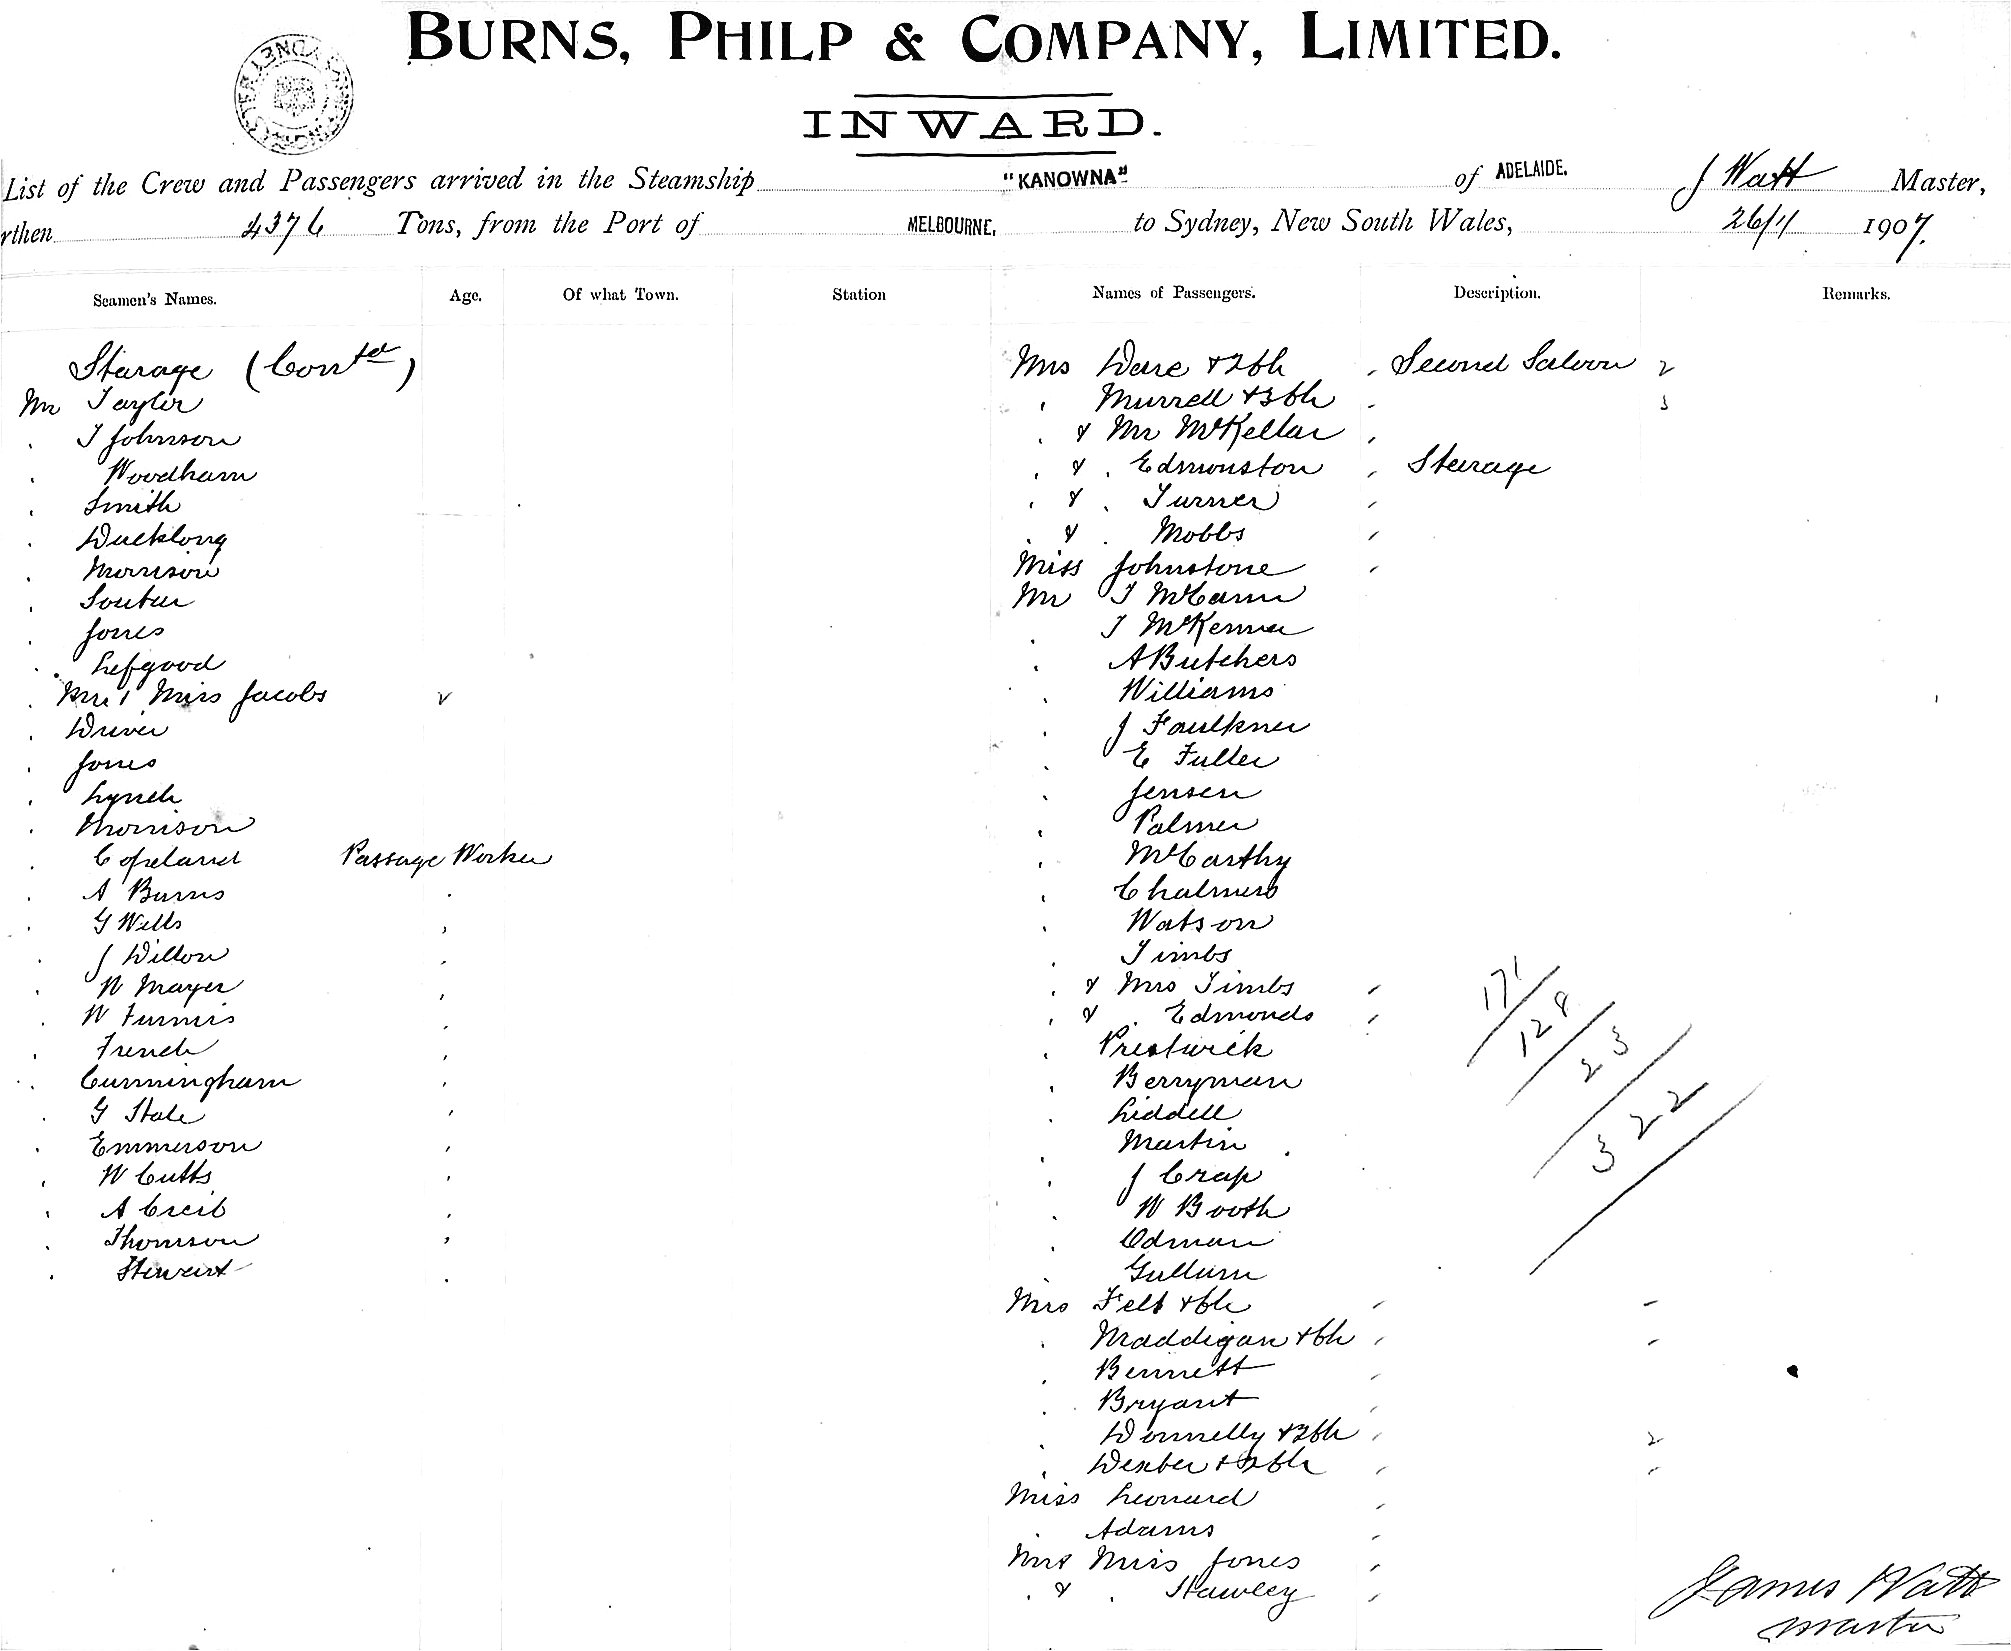 BURNS, PHILP & COMPANY, LIMITED.
INWARD.
List of the Crew and Passengers arrived in the Steamship "KANOWNA" of ADELAIDE. J Watt Master,
rthen 4376 Tons, from the Port of MELBOURNE, to Sydney, New South Wales, 26/11 1907.
Seamen's Names. Age. Of what Town. Station Names of Passengers. Description. Remarks.
Starage (Contd)
Mr Tayler
. J Johnson
. Woodham
. Smith
. Ducklong
. Morrison
. Soutar
. Jones
. Lefgood
. Mr & Miss Jacobs
. Driver
. Jones
. Lynch
. Morrison
. Copeland Passage Worker
. A Burns
. G Wills
. J Dillon
. W Mayer
. W Furnis
. French
. Cunningham
. G Stale
. Emmerson
. W Cutts
. A Creib
. Thomson
. Stewart
Mrs Dare & 2 Ch Second Saloon 2
. Murrell & 3 Ch 3
. & Mr McKellar
. & . Edmonston Stearage
. & . Turner
. & . Mobbs
Miss Johnstone
Mr J McCann
. J McKenna
. A Butchers
. Williams
. J Faulkner
. E Fuller
. Jensen
. Palmer
. McCarthy
. Chalmers
. Watson
. Timbs
. & Mrs Timbs
. & . Edmonds
. Prestwick
. Berryman
. Liddell
. Martin
. J Crap
. W Booth
. Odman
. Gullum
Mrs Felt & Ch
. Maddigan & Ch
. Bennett
. Bryant
. Donnelly & 2 Ch 2
. Dexter & Ch
Miss Leonard
. Adams
Mr & Miss Jones
. & . Stawley
171/
128/
23/
322/
James Watt
Master